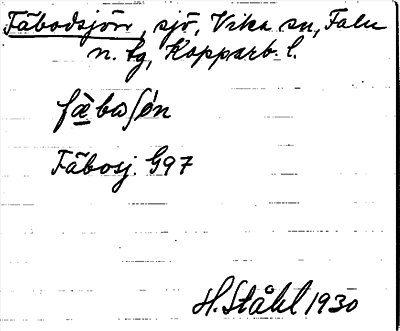 Fäbodsjön, sjö, Vika sn, Falu
n. tg, Kopparb. l.
fæ̀baʃø̀n
Fäbosj. G97
H. Ståhl 1930